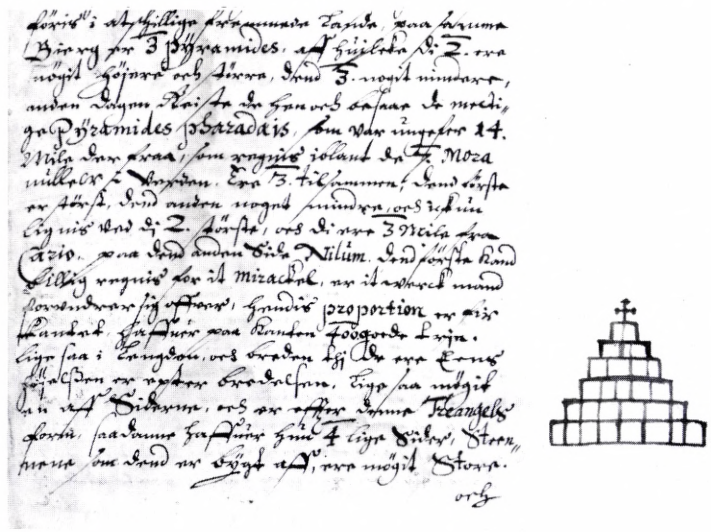 føris i atskillige fremmede Lande, paa samme
Bierg er 3 Pÿramides, aff huilcke di 2. ere
nogit højere och større, dend 3. nogit mindre,
anden dagen Reiste de hen och besaae de mecti=
ge Pÿramides pharaonis, som var ungefer 14.
Mile der fraa, som regnis iblant de 7.
i Verden. Ere 3. tilsammen, dend første
er størst, dend anden noget mindre, och
lignis ved di 2. største, och di ere 3 Meile fra
Cario, paa dend anden Side Nilum. dend første kand
billig regnis for it mirackel, er it werck mand
forundrer sig offver, hendis proportion er fiir
kantet, haffuer paa kanten 400 goede trin.
lige saa i Lengden, och breden thj de ere Eens
højelsen er epter bredelsen, lige saa mögit
en aff Siderne, och er effter denne Treangels
form, saadanne haffuer hun 4 lige Sider, Steen=
nene som dend er bÿgt aff, ere mögit Store.
och